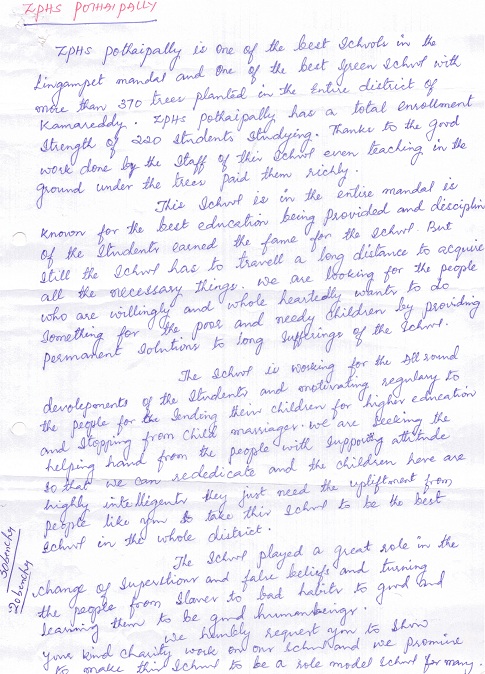 ZPHS POTHAIPALLY
ZPHS Pothaipally is one of the best Schools in the
Lingampet mandal and one of the best green School with
more than 370 trees planted in the entire district of
Kamareddy. ZPHS Pothaipally has a total enrollment
Strength of 220 Students Studying. Thanks to the good
work done by the Staff of this School even teaching in the
ground under the trees paid them richly.
This School is in the entire mandal is
known for the best education being provided and disciplin
of the Students earned the fame for the School. But
Still the School has to travell a long distance to acquire
all the necessary things. We are looking for the people
who are willingly and whole heartedly wants to do
Something for the poor and needy children by providing
permanent Solutions to long Sufferings of the School.
The School is working for the All round
devoleponents of the Students and motivating regulary to
the people for the Sending their children for higher education
and Stopping from Child marriages. We are Seeking the
helping hand from the people with Supporting attitude
So that we can rededicate and the children here are
highly intelligents they just need the upliftment from
people like you to take this School to be the best
School in the whole district.
The School played a great role in the
change of Superstions and false beliefs and turning
the people from Slaves to bad habits to good and
learning them to be good humanbeings.
We humbly request you to Show
your kind charity work on our School and we promise
to make this School to be a role model School for many.
30 benches
20 benches